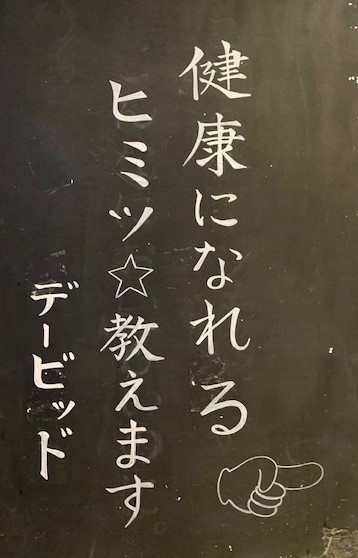 健康になれる
ヒミツ☆教えます
デービッド